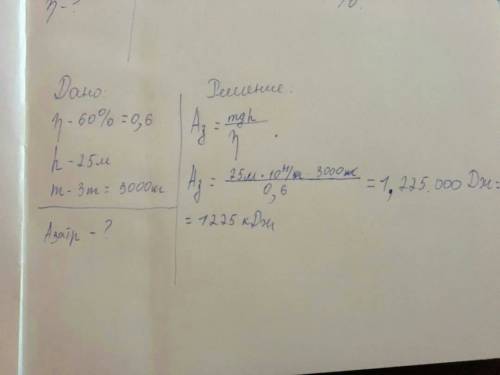 η-?
%.
Дано:
η - 60% = 0,6
h - 25м
m - 3т = 3000кг
Aзатр - ?
Решение.
Aз = mgh / η .
Aз = 25м · 10 Н/кг · 3000кг / 0,6 = 1,225.000 Дж =
= 1225 кДж